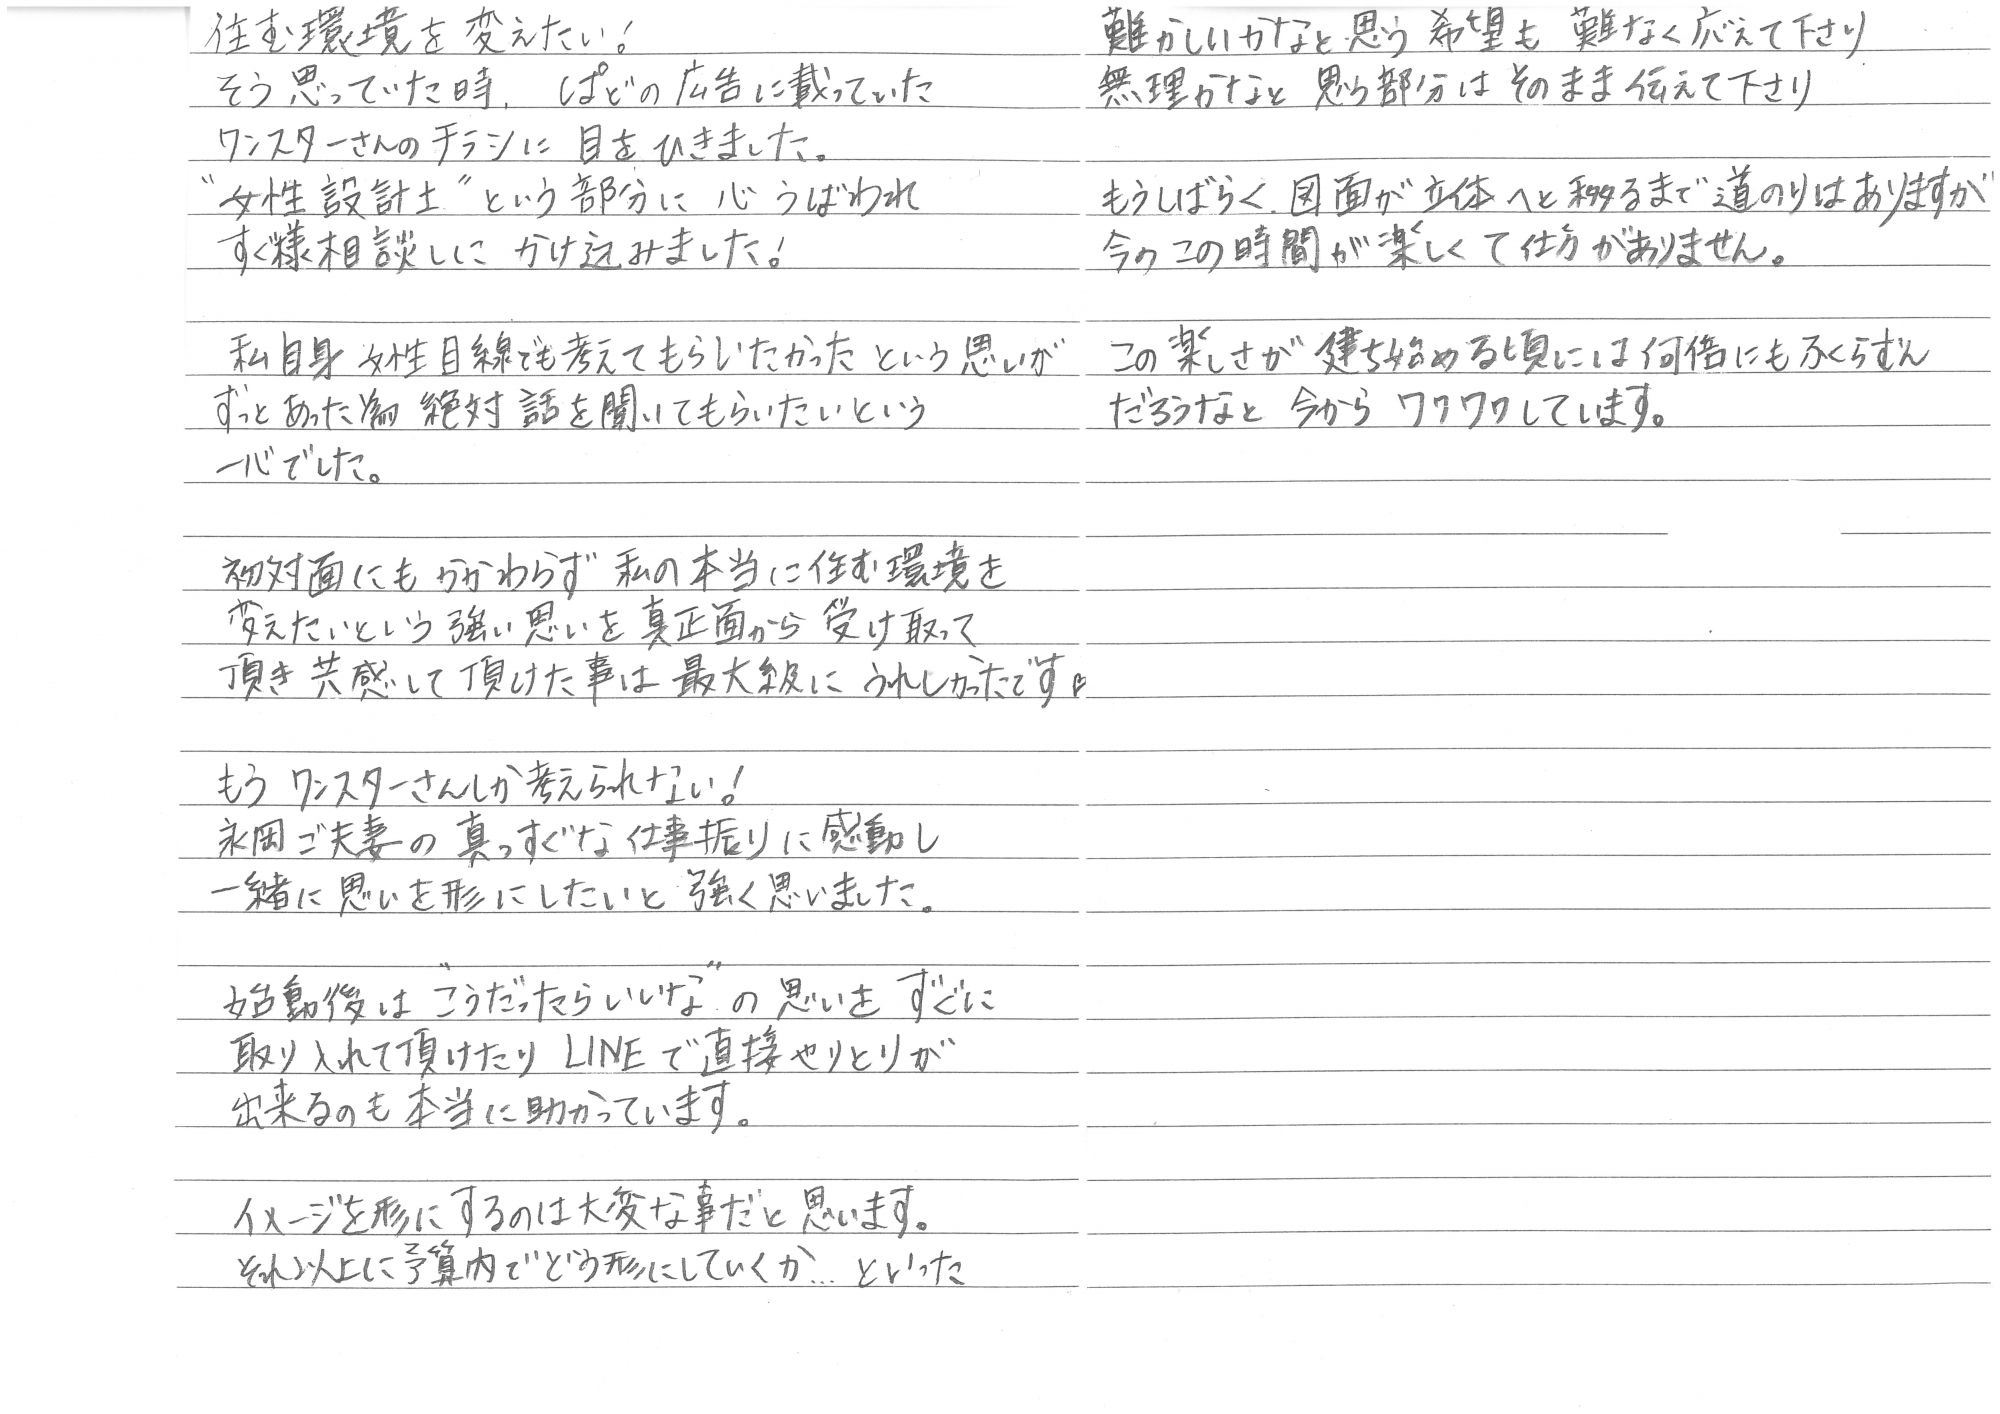 住む環境を変えたい!
そう思っていた時、ぱどの広告に載っていた
ワンスターさんのチラシに 目をひきました。
"女性設計士"という部分に 心うばわれ
すぐ様相談しに かけ込みました!
私自身 女性目線でも考えてもらいたかったという思いが
ずっとあった為 絶対話を聞いてもらいたいという
一心でした。
初対面にもかかわらず 私の本当に住む環境を
変えたいという強い思いを真正面から受け取って
頂き共感して頂けた事は最大級に うれしかったです。
もう ワンスターさんしか考えられない!
永岡ご夫妻の 真っすぐな仕事振りに感動し
一緒に思いを形にしたいと 強く思いました。
始動後は"こうだったらいいな"の思いを すぐに
取り入れて頂けたり LINEで直接やりとりが
出来るのも本当に助かっています。
イメージを形にするのは大変な事だと思います。
それ以上に予算内でどう形にしていくか…といった
難かしいかなと思う希望も 難なく応えて下さり
無理かなと 思う部分はそのまま伝えて下さり
もうしばらく、図面が立体へと移るまで道のりはありますが
今のこの時間が楽しくて仕方がありません。
この楽しさが 建ち始める頃には何倍にもふくらむん
だろうなと 今から ワクワクしています。